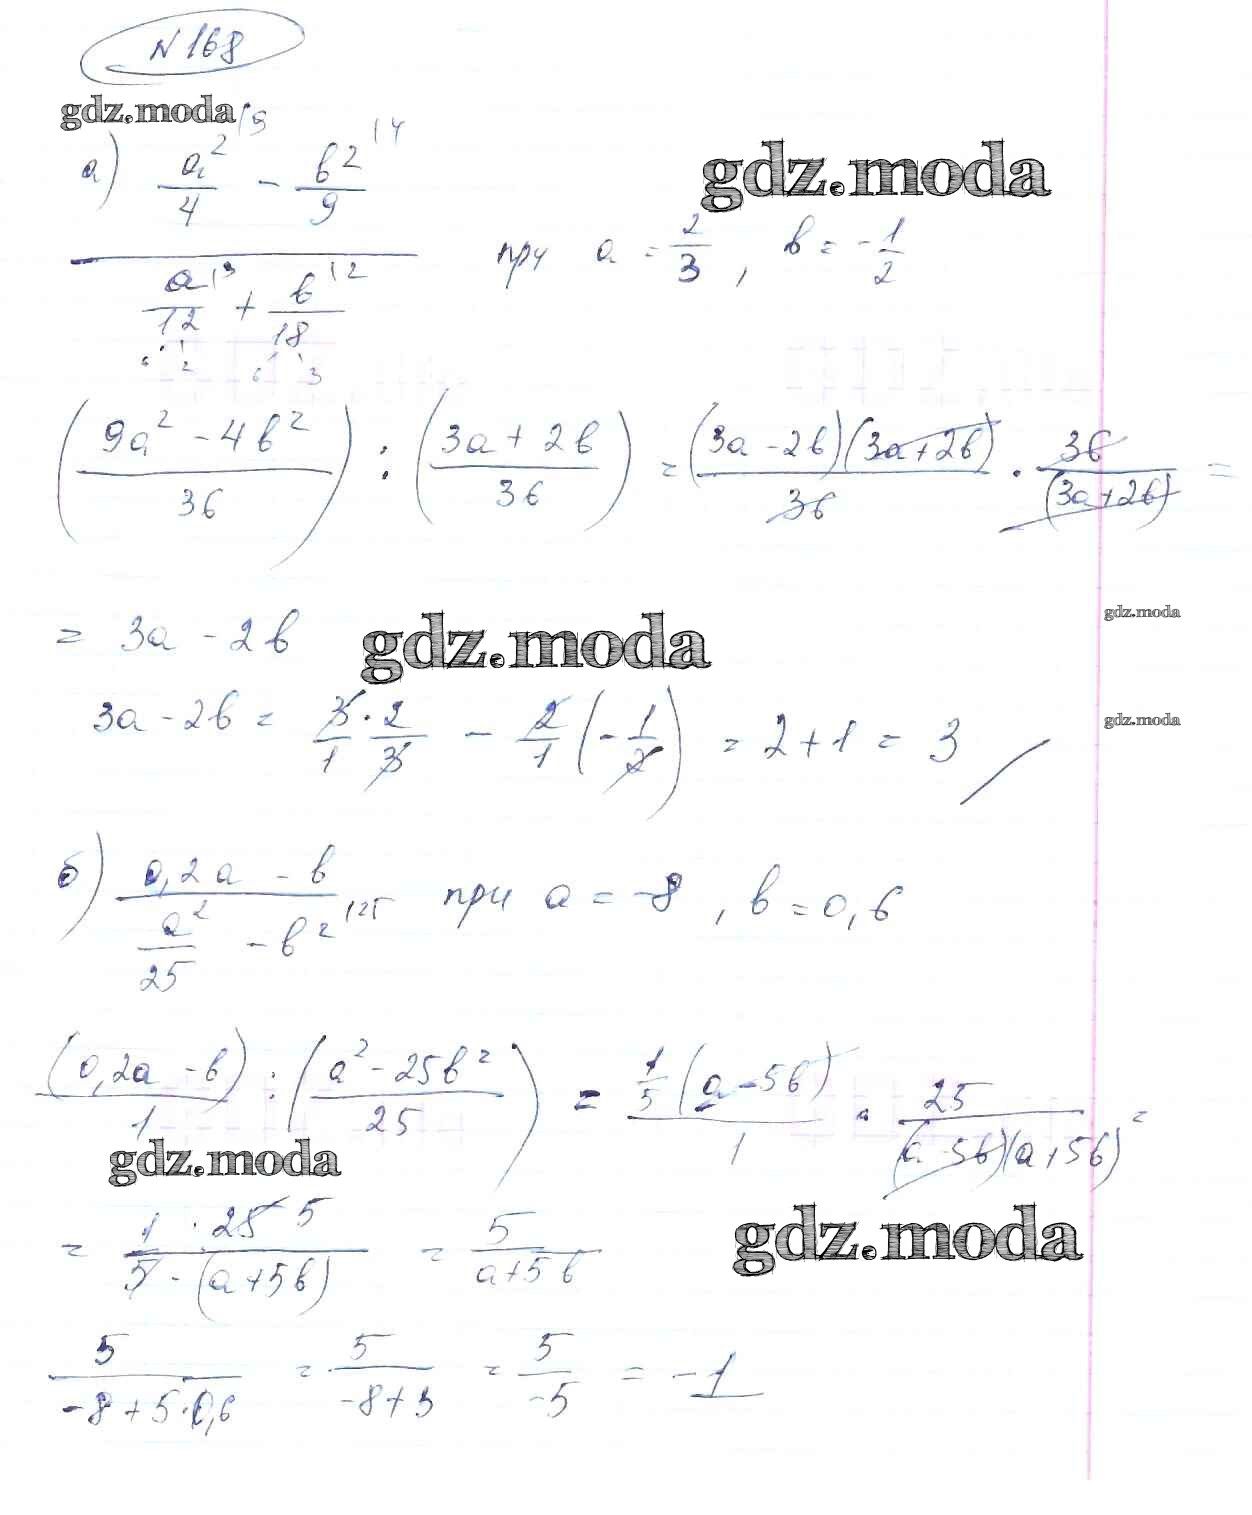 N 168
gdz.moda
а) (a²/4 |9 - b²/9 |4) / (a/12 |3 + b/18 |2) при a = 2/3, b = -1/2
gdz.moda
6 2 6 3
((9a² - 4b²)/36) : ((3a + 2b)/36) = (3a - 2b)(3a + 2b)/36 · 36/(3a + 2b) =
= 3a - 2b
gdz.moda
gdz.moda
3a - 2b = 3/1 · 2/3 - 2/1 (-1/2) = 2 + 1 = 3
gdz.moda
б) (0,2a - b) / (a²/25 - b² |25) при a = -8, b = 0,6
(0,2a - b)/1 : ((a² - 25b²)/25) = 1/5 (a - 5b)/1 · 25/((a - 5b)(a + 5b)) =
gdz.moda
= 1 · 25 5/(5 · (a + 5b)) = 5/(a + 5b)
gdz.moda
5/(-8 + 5 · 0,6) = 5/(-8 + 3) = 5/-5 = -1